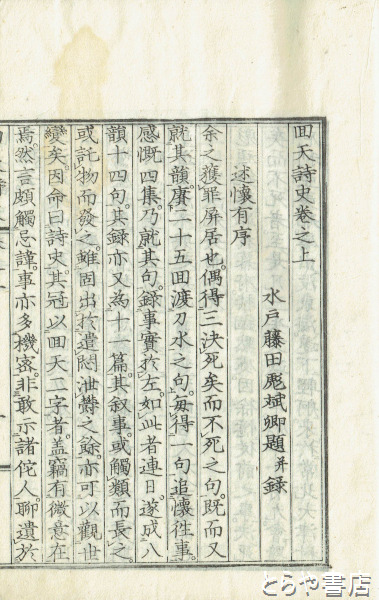 回天詩史卷之上
水戶藤田彪斌卿題并錄
述懷有序
余之獲罪屏居也。偶得三決死矣而不死之句。既而又
就其韻。賡二十五回渡刀水之句。每得一句。追懷往事。
感慨四集。乃就其句。錄事實於左。如此者連日。遂成八
韻十四句。其錄亦又為十一篇。其叙事。或觸類而長之。
或託物而發之。雖固出於遣悶泄鬱之餘。亦可以觀世
變矣。因命曰詩史。其冠以回天二字者。蓋竊有微意在
焉。然言頗觸忌諱。事亦多機密。非敢示諸佗人。聊遺於
とらや書店